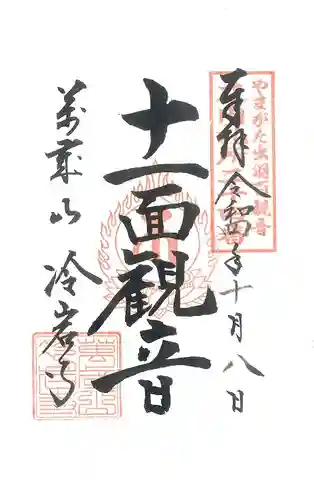 奉拝 令和四年十月八日
やまがた出羽百観音
十一面観音
萬歳山 冷岩寺